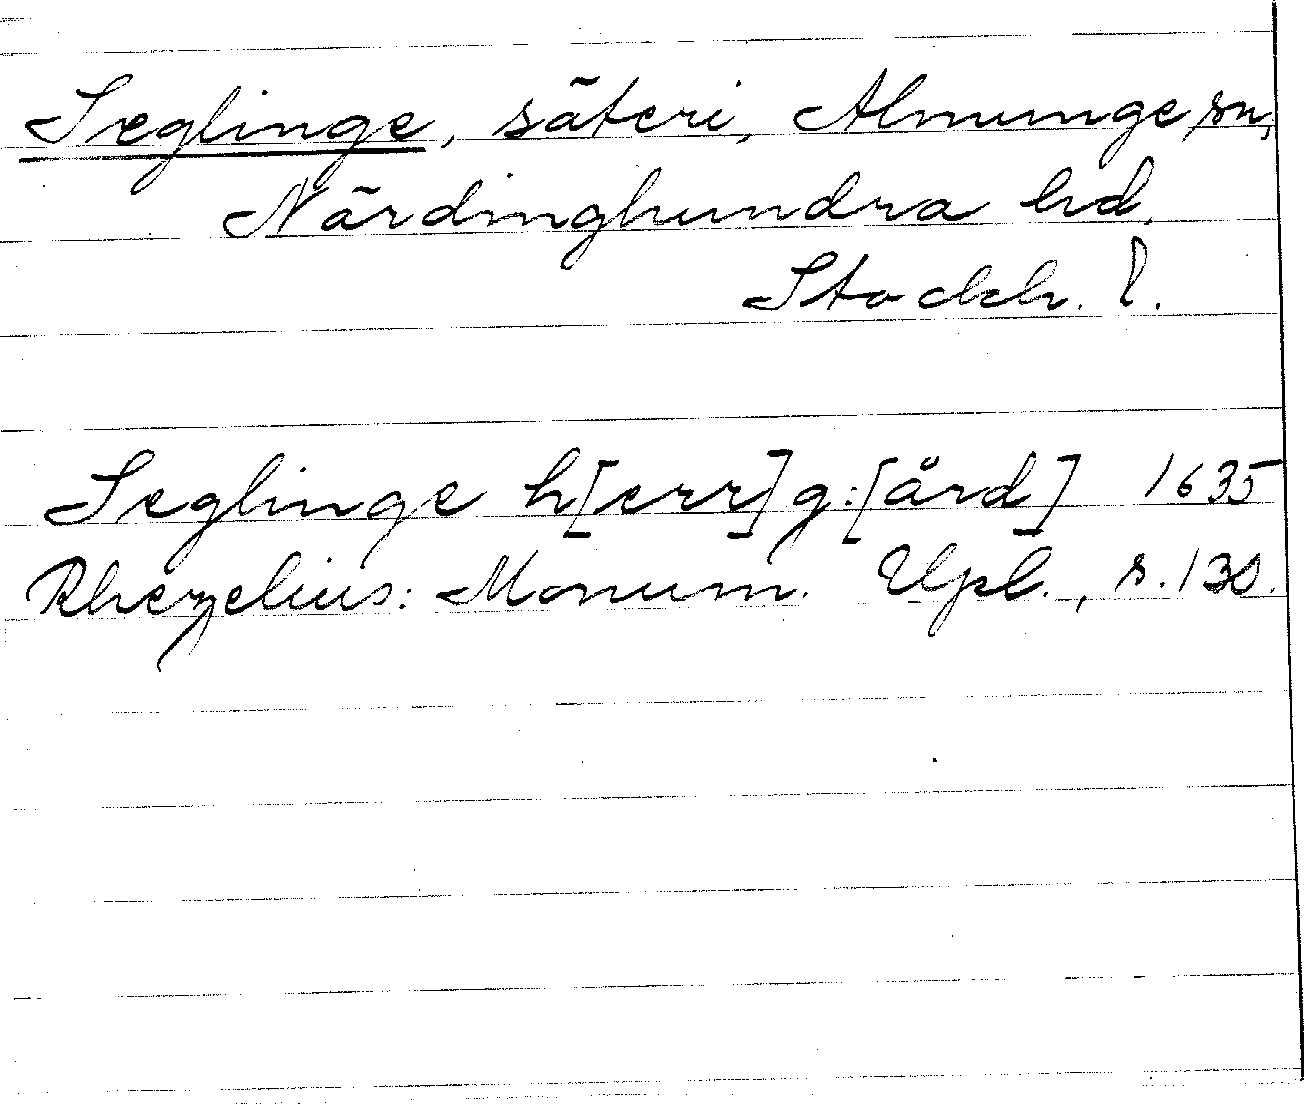 Seglinge, säteri, Almunge sn,
Närdinghundra hd.
Stockh. l.
Seglinge h[err]g:[ård] 1635
Rhezelius: Monum. Upl., s. 130.